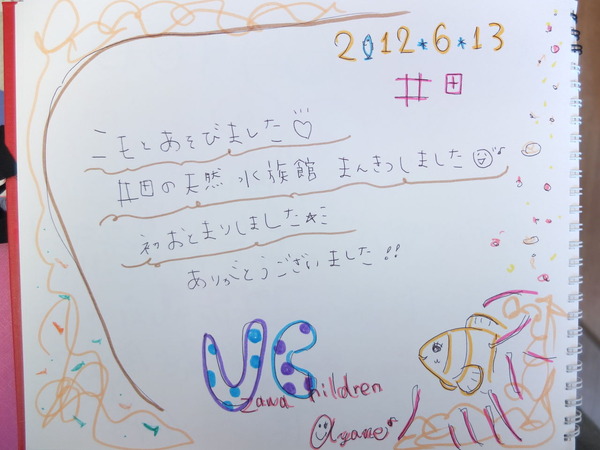 2012*6*13
井田
ニモとあそびました♡
井田の天然 水族館 まんきつしました
初おとまりしました☆
ありがとうございました!!
UC
zawa hildren
Ayane